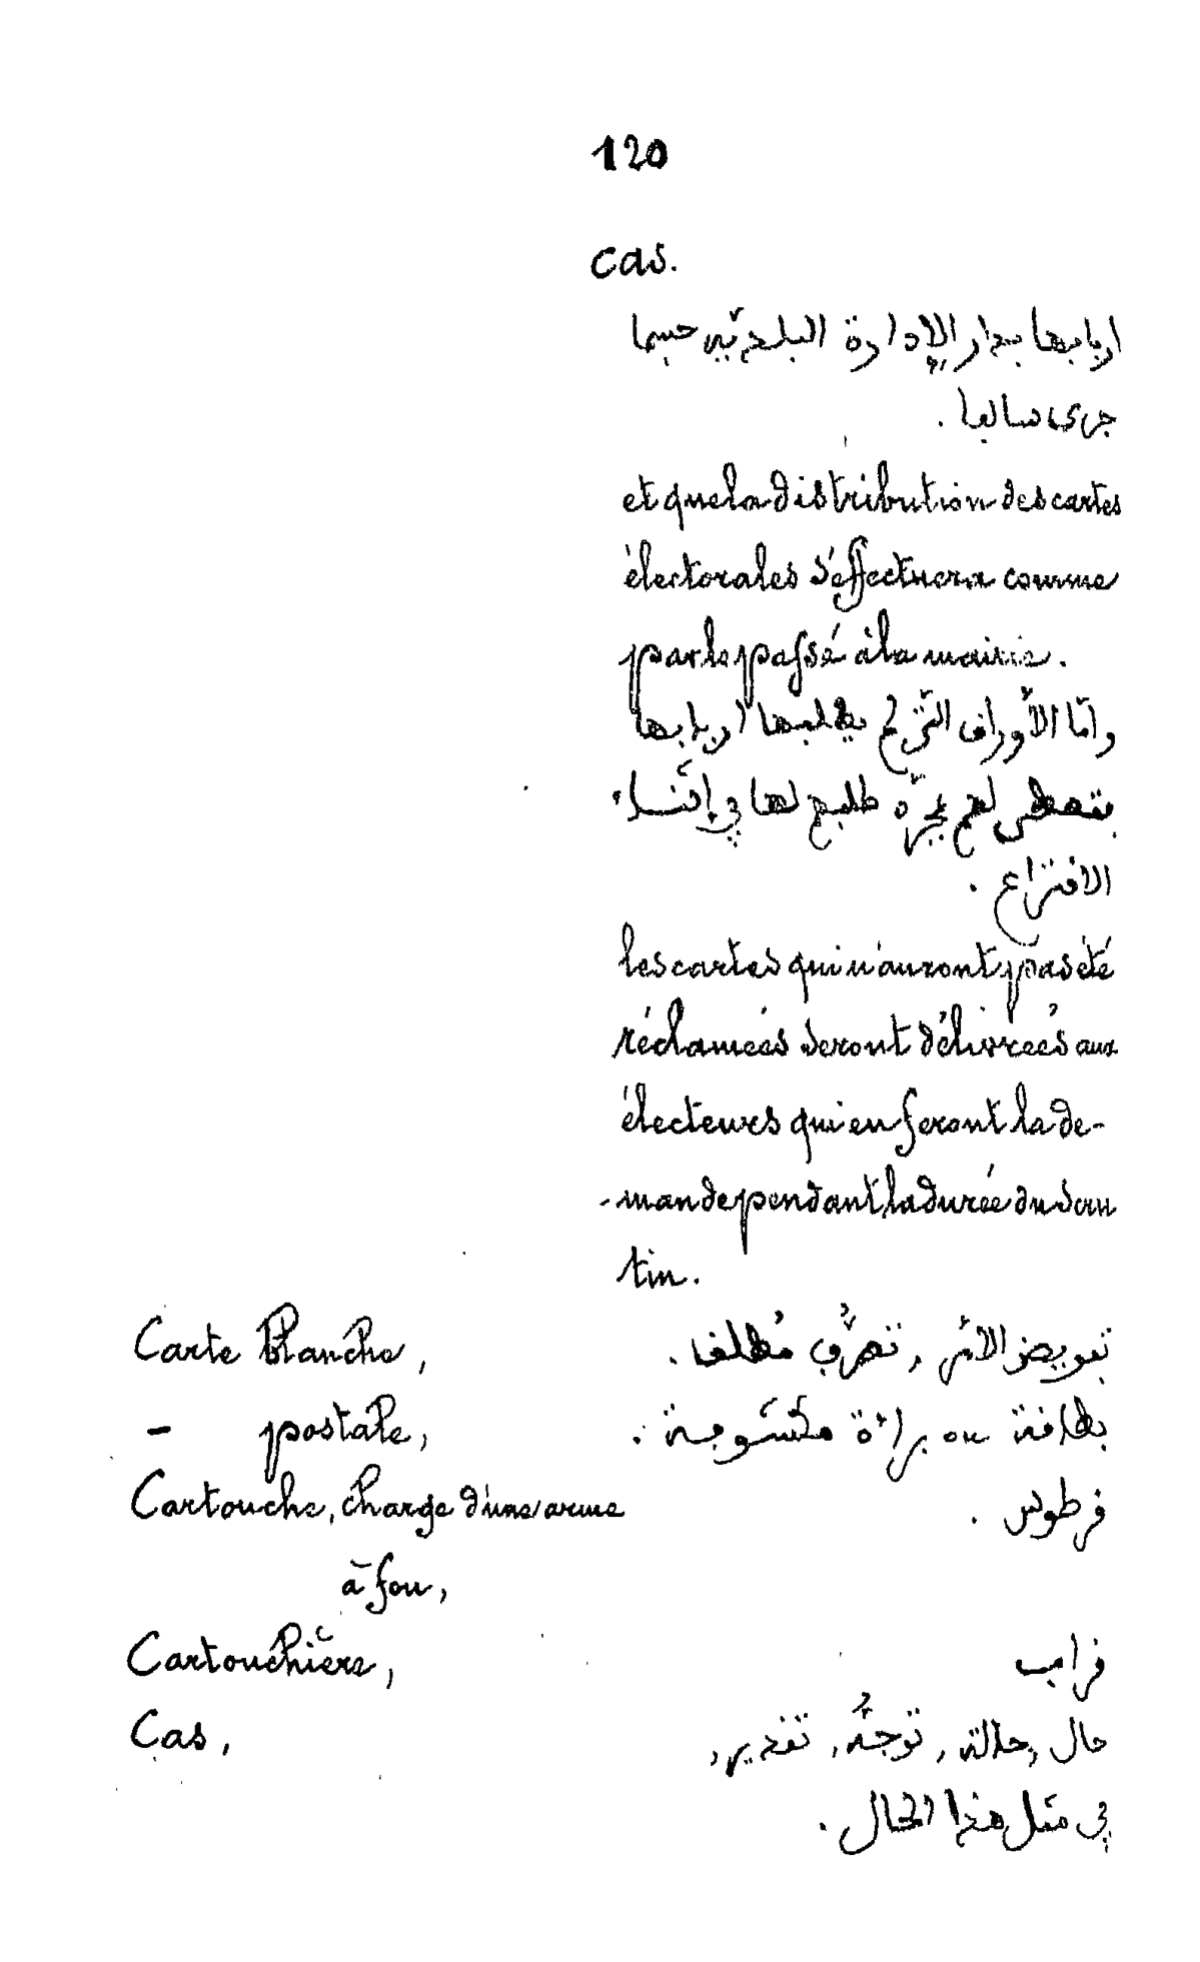 120
cas.
اربابها بدار الإدارة البلديّة حسبما
جرى سالفا .
et que la distribution des cartes
électorales s'éffectuera comme
par le passé à la mairie.
وامّا الأوراق التّي لم يطلبها اربابها
فتعطى لهم بمجرّد طلبهم لها في إثناء
الاقتراع .
les cartes qui n'auront pas été
réclamées seront délivrées aux
électeurs qui en feront la de-
-mande pendant la durée du scru
tin.
Carte blanche, تفويض الأمر , تصرُّف مُطلقا .
— postale, بطاقة ou براءة مكشوفة .
Cartouche, charge d'une arme قرطوس .
à feu,
Cartouchière, قراب
Cas, حال , حالة , توجّه , تقدير ,
في مثل هذا الحال .